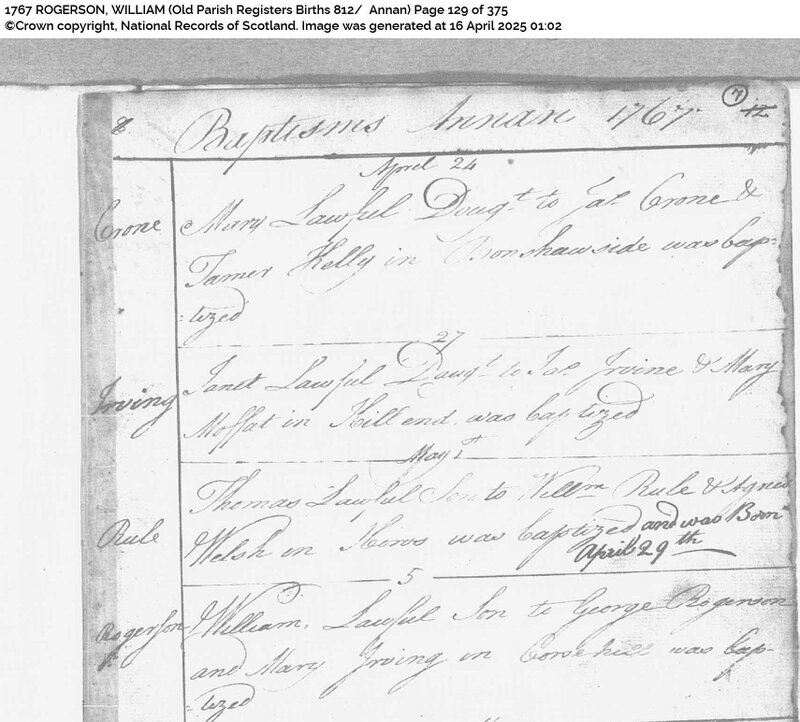 1767 ROGERSON, WILLIAM (Old Parish Registers Births 812/ Annan) Page 129 of 375
©Crown copyright, National Records of Scotland. Image was generated at 16 April 2025 01:02
8 Baptisms Annan 1767 7 12
April 24
Crone Mary Lawful Daugt. to Jas. Crone &
Tamer Kelly in Bonshawside was bap-
-tized
27
Irving Janet Lawful Daugt. to Jas. Irvine & Mary
Moffat in Hillend was baptized
May 1t
Thomas Lawful Son to Willm Rule & Agnes
Rule Welsh in Hows was baptized and was Born
April 29th
5
Rogerson William, Lawful Son to George Rogerson
and Mary Irving in Corsehill was bap-
-tized